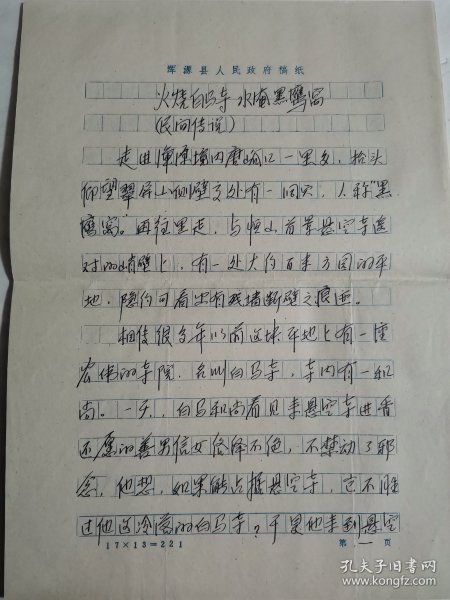 浑源县人民政府稿纸
火烧白马寺 水淹黑鹰窝
(民间传说)
走进浑源境内磨峪口一里多,抬头
仰望翠屏山侧壁多处有一洞穴,人称“黑
鹰窝”。再往里走,与恒山首景悬空寺遥
对的峭壁上,有一处大约百来方园的平
地,隐约可看出有残墙断壁之痕迹。
相传很多年以前这块平地上有一座
宏伟的寺院,名叫白马寺,寺内有一和
尚。一天,白马和尚看见来悬空寺进香
还愿的善男信女络绎不绝,不禁动了邪
念,他想,如果能占据悬空寺,岂不胜
过他这冷落的白马寺?于是他来到悬空
17×13=221
第一页
孔夫子旧书网